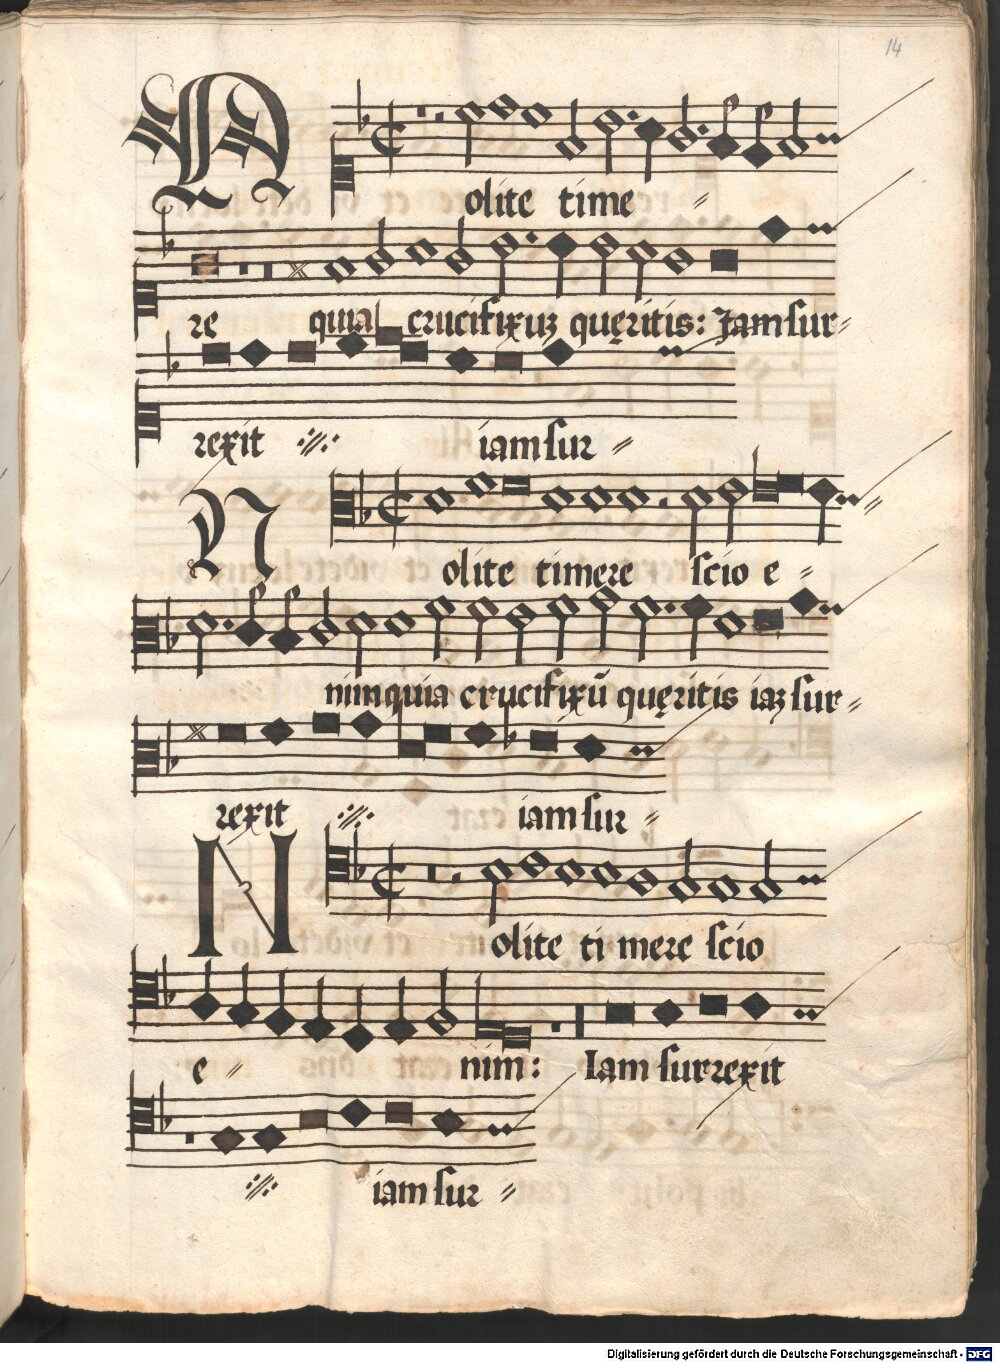 14
Nolite time
re quia crucifixuz quęritis: Jam sur-
rexit ://: iam sur
Nolite timere scio e
nim quia crucifixū quęritis iaz sur-
rexit ://: iam sur
Nolite timere scio
e nim: Iam surrexit
://: iam sur
Digitalisierung gefördert durch die Deutsche Forschungsgemeinschaft - DFG